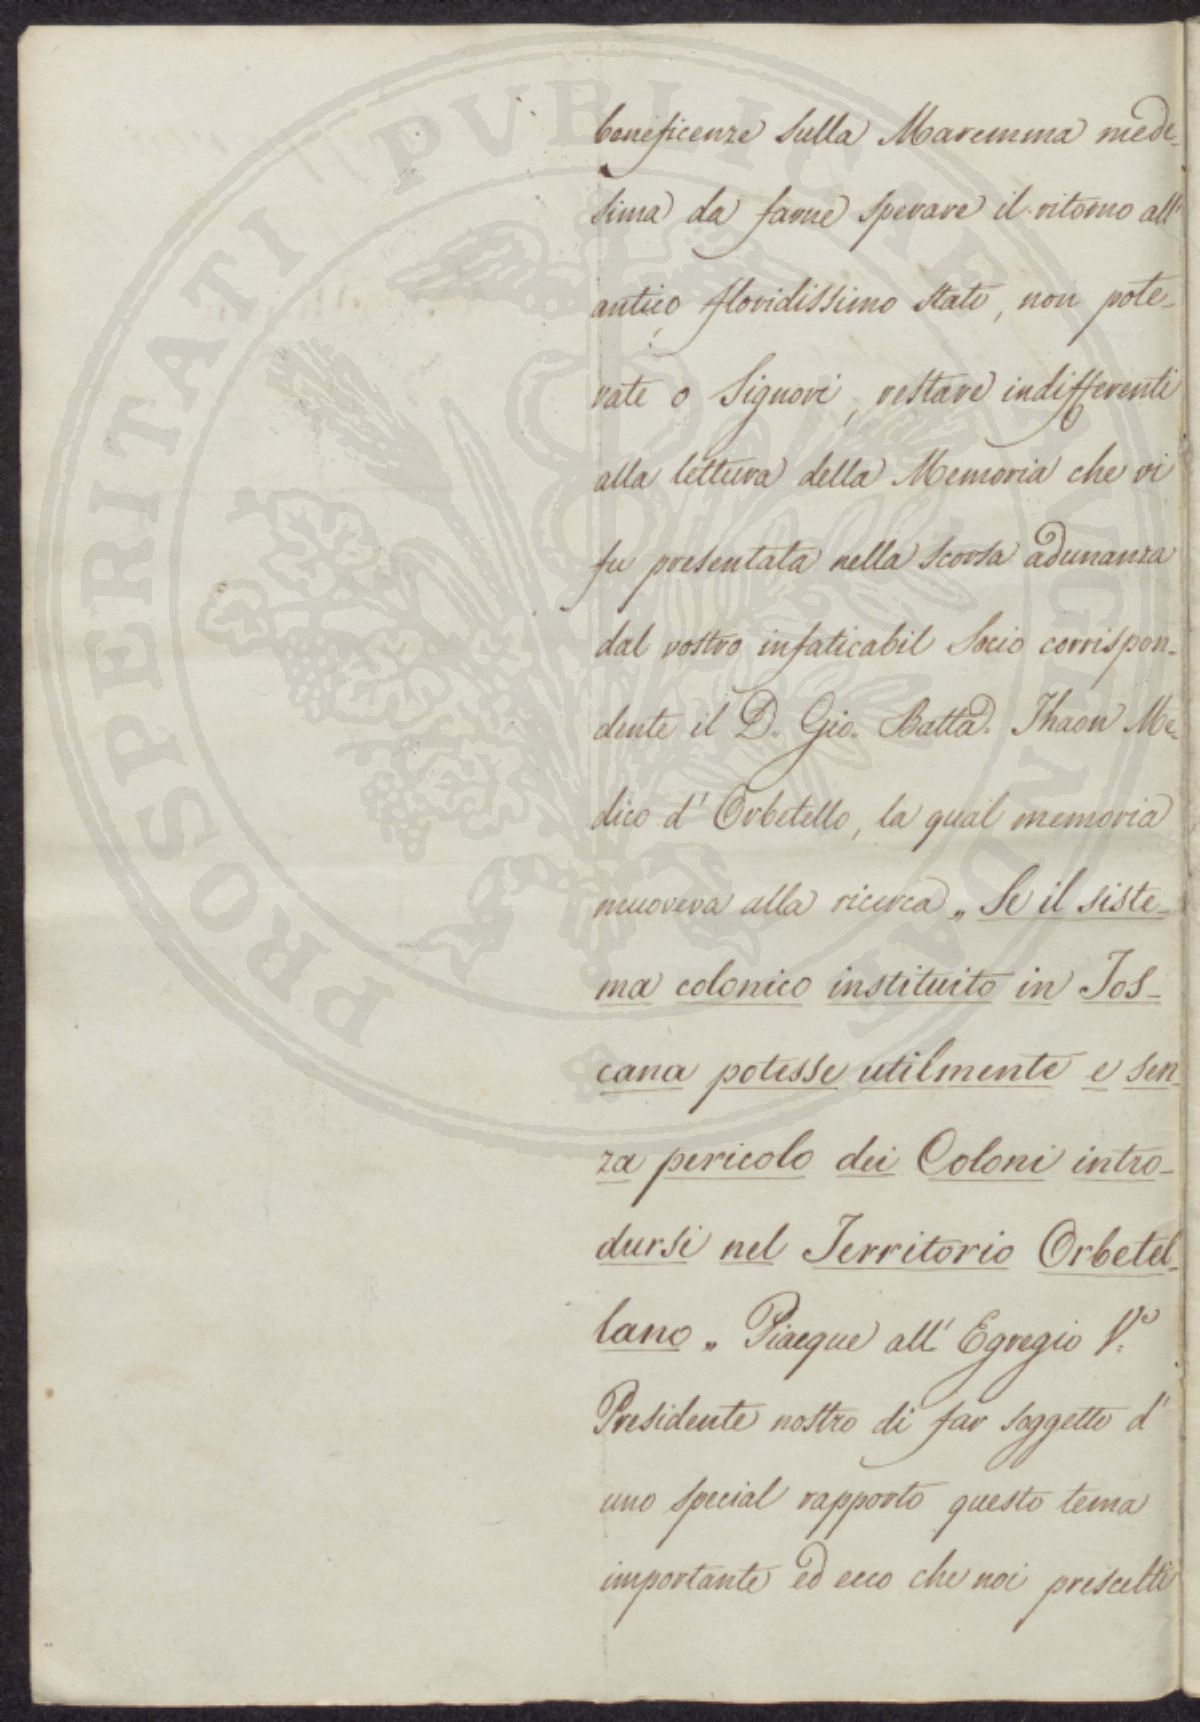 beneficenze sulla Maremma mede-
sima da farne sperare il ritorno all'
antico floridissimo stato, non pote-
vate o Signori, restare indifferenti
alla lettura della Memoria che vi
fu presentata nella scorsa adunanza
dal vostro infaticabil Socio corrispon-
dente il D. Gio. Batta. Thaon Me-
dico d' Orbetello, la qual memoria
muoveva alla ricerca „ Se il siste-
ma colonico instituito in Tos-
cana potesse utilmente e sen
za pericolo dei Coloni intro-
dursi nel Territorio Orbetel-
lano „ Piacque all' Egregio V.o
Presidente nostro di far soggetto d'
uno special rapporto questo tema
importante ed ecco che noi prescelti
PROSPERITATI PUBLICAE AUGENDAE